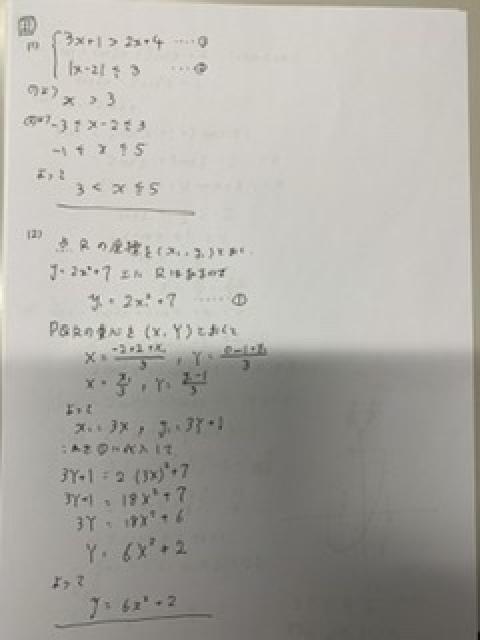 1
(1) { 3x+1 > 2x+4 ‥‥①
|x-2| ≦ 3 ‥‥②
①より x > 3
②より -3 ≦ x-2 ≦ 3
-1 ≦ x ≦ 5
よって
3 < x ≦ 5
(2) 点Rの座標を(x₁, y₁)とおく.
y=2x²+7上に Rはあるので
y₁ = 2x₁²+7 ‥‥①
PQRの重心を(X, Y)とおくと
X = (-2+2+x₁)/3 , Y = (0-1+y₁)/3
X = x₁/3 , Y = (y₁-1)/3
よって
x₁ = 3X , y₁ = 3Y+1
これを①に代入して
3Y+1 = 2(3X)²+7
3Y+1 = 18X²+7
3Y = 18X²+6
Y = 6X²+2
よって
y = 6x²+2